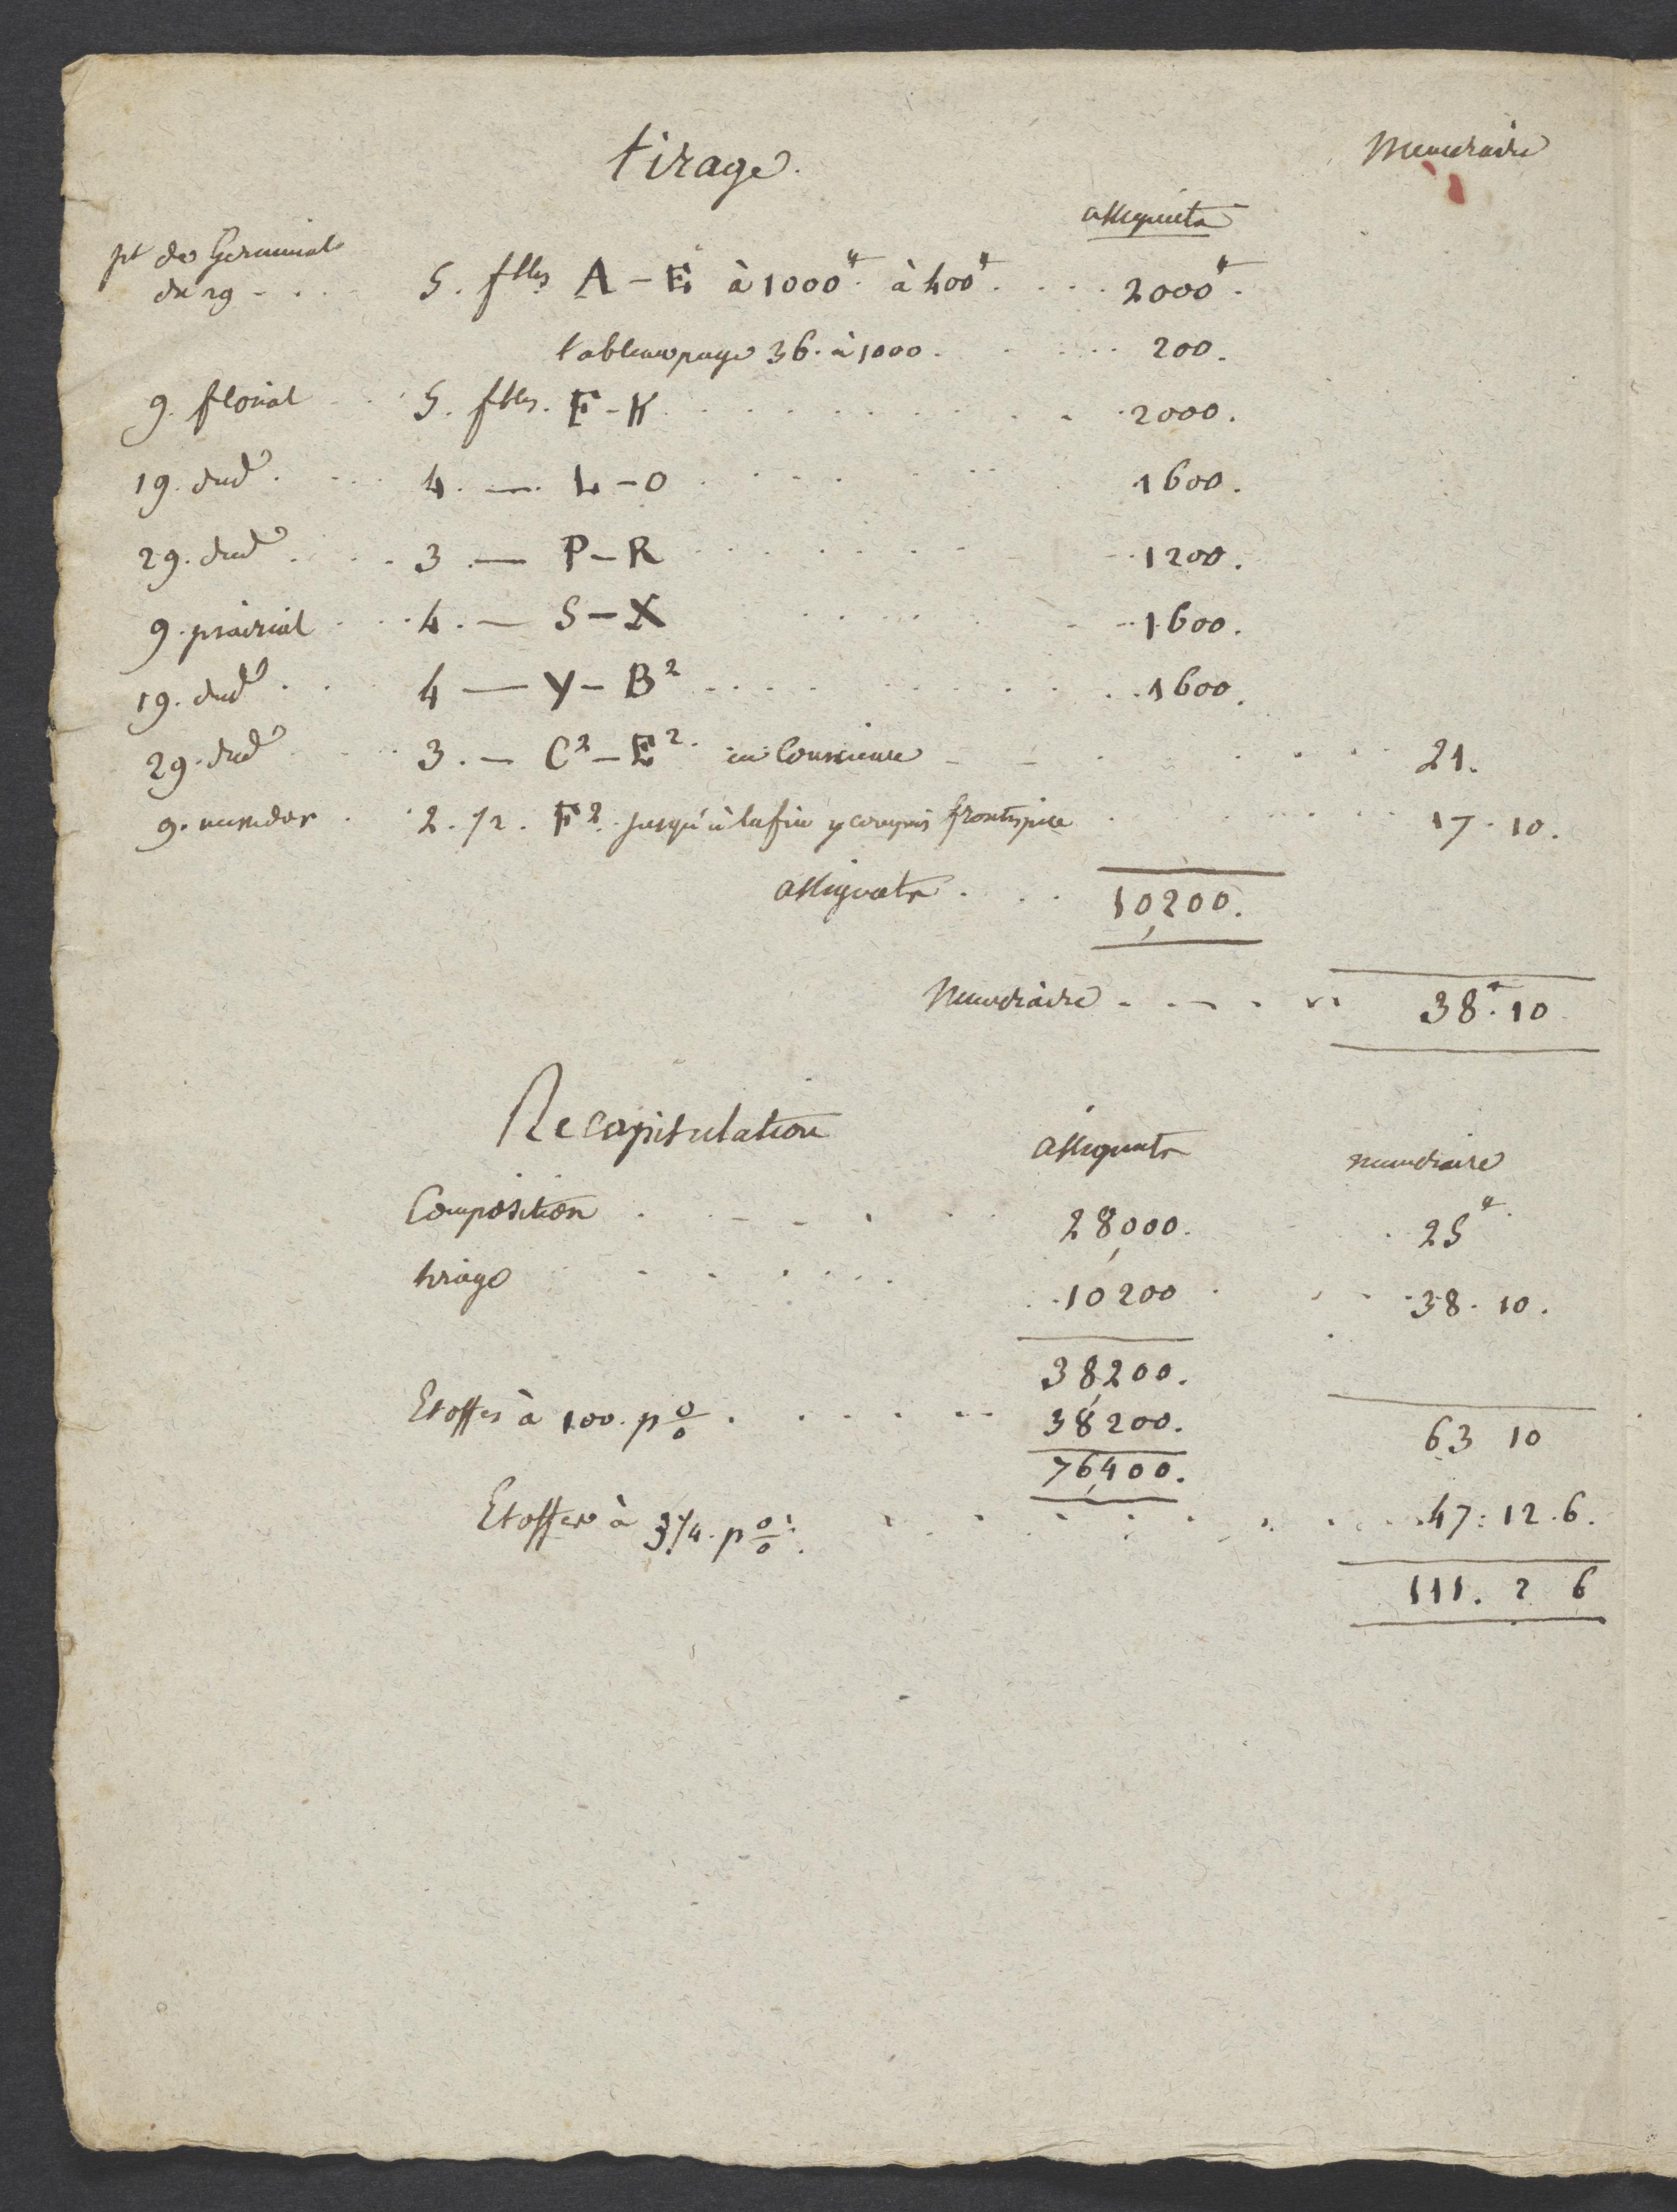 tirage.
Numeraire
assignats
pt de Germinal
du 29 - . . 5. flles A - E à 1000# à 400# . . . 2000#.
tableau page 36. à 1000 . . . . 200.
9. floréal . . 5. flles. F - K . . . . . . . . 2000.
19. dud . . . 4. — L - O . . . . . . 1600.
29. dud . . . 3 . — P - R . . . . . . 1200.
9. prairial . . . 4. — S - X . . . . . 1600.
19. dud . . . 4 — Y - B2 . . . . . . . 1600.
29. dud . . . 3. — C2 - E2. en Conscience . . . . . 21.
9. messidor . . 2. 1/2. F2. jusqu'à la fin y compris frontispice . . . . . 17. 10.
assignats . . . 10,200.
Numeraire - . - . . . 38# 10
Recapitulation
assignats numeraire
Composition . . - - . . . 28,000. . 25#
tirage . . . . . . . 10200 . . . . 38. 10.
38,200.
Etoffes à 100. p o/o . . . . . - - 38200. 63 10
76,400.
Etoffes à 3/4. p o/o . . . . . . . . . 47: 12. 6.
111. 2 6